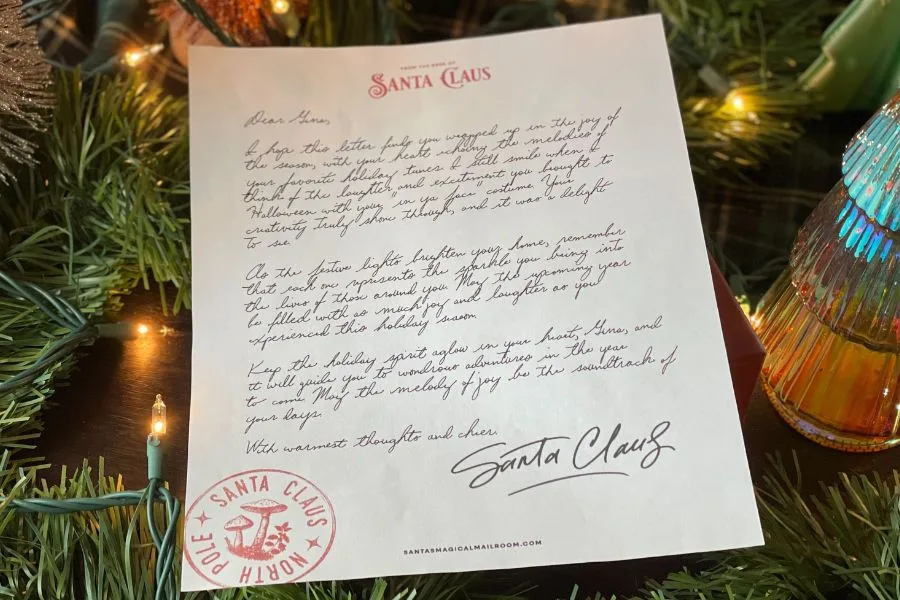 FROM THE DESK OF
SANTA CLAUS
Dear Gina,
I hope this letter finds you wrapped up in the joy of
the season, with your heart echoing the melodies of
your favorite holiday tunes. I still smile when I
think of the laughter and excitement you brought to
Halloween with your "in ya face" costume. Your
creativity truly shone through, and it was a delight
to see.
As the festive lights brighten your home, remember
that each one represents the sparkle you bring into
the lives of those around you. May the upcoming year
be filled with as much joy and laughter as you
experienced this holiday season.
Keep the holiday spirit aglow in your heart, Gina, and
it will guide you to wondrous adventures in the year
to come. May the melody of joy be the soundtrack of
your days.
With warmest thoughts and cheer,
Santa Claus
SANTA CLAUS
NORTH POLE
SANTASMAGICALMAILROOM.COM